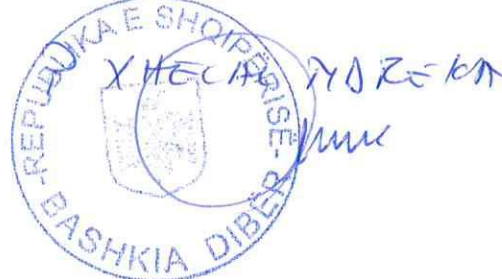 -REPUBLIKA E SHQIPËRISË-
BASHKIA DIBËR
XHELAL MZREKA